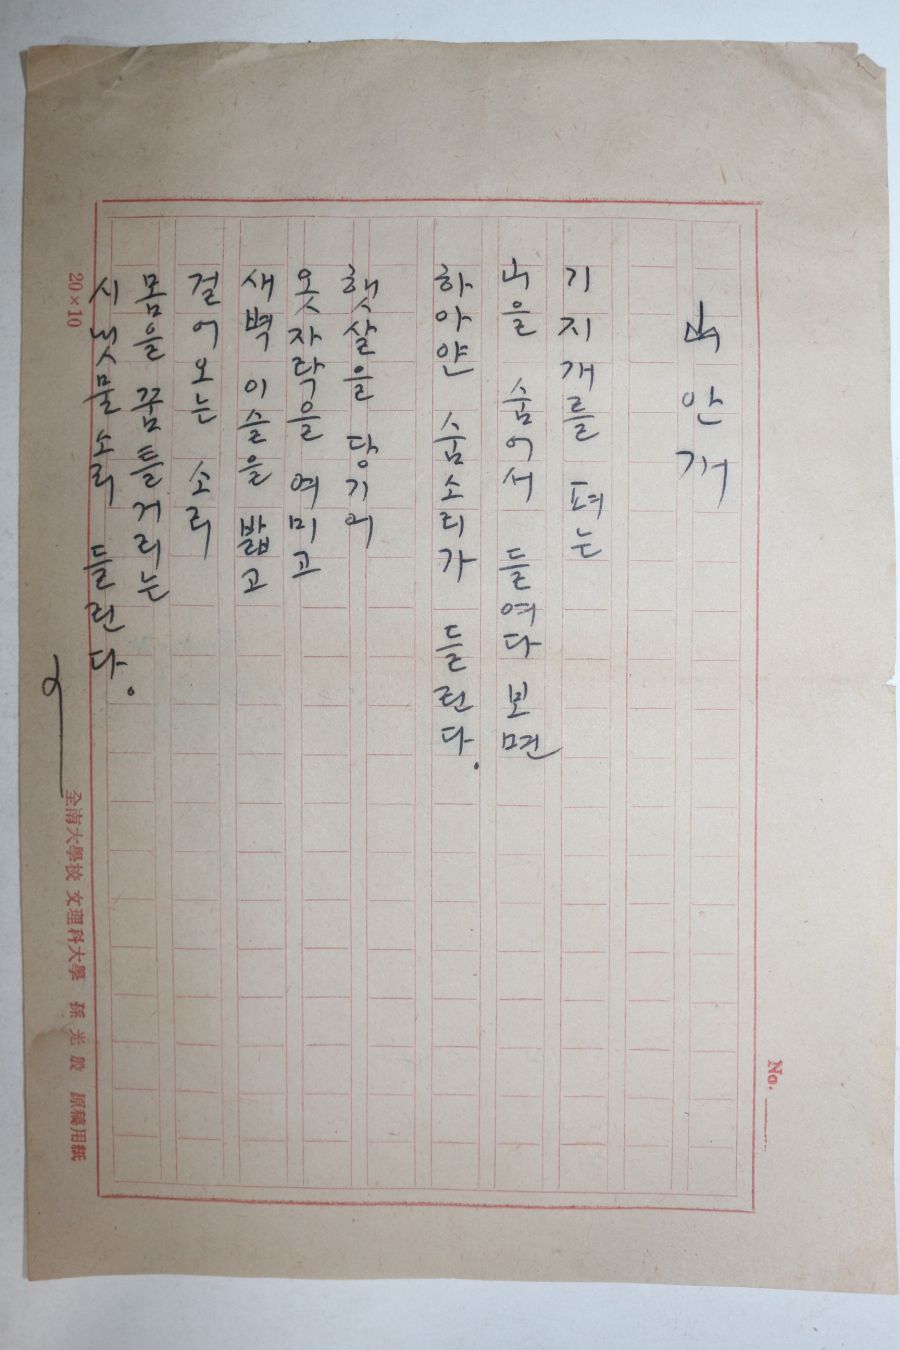 山 안개
기지개를 펴는
山을 숨어서 들여다 보면
하아얀 숨소리가 들린다.
햇살을 당기어
옷자락을 여미고
새벽 이슬을 밟고
걸어오는 소리
몸을 꿈틀거리는
시냇물소리 들린다.
No.
20×10
全南大學校 文理科大學 孫光殷 原稿用紙